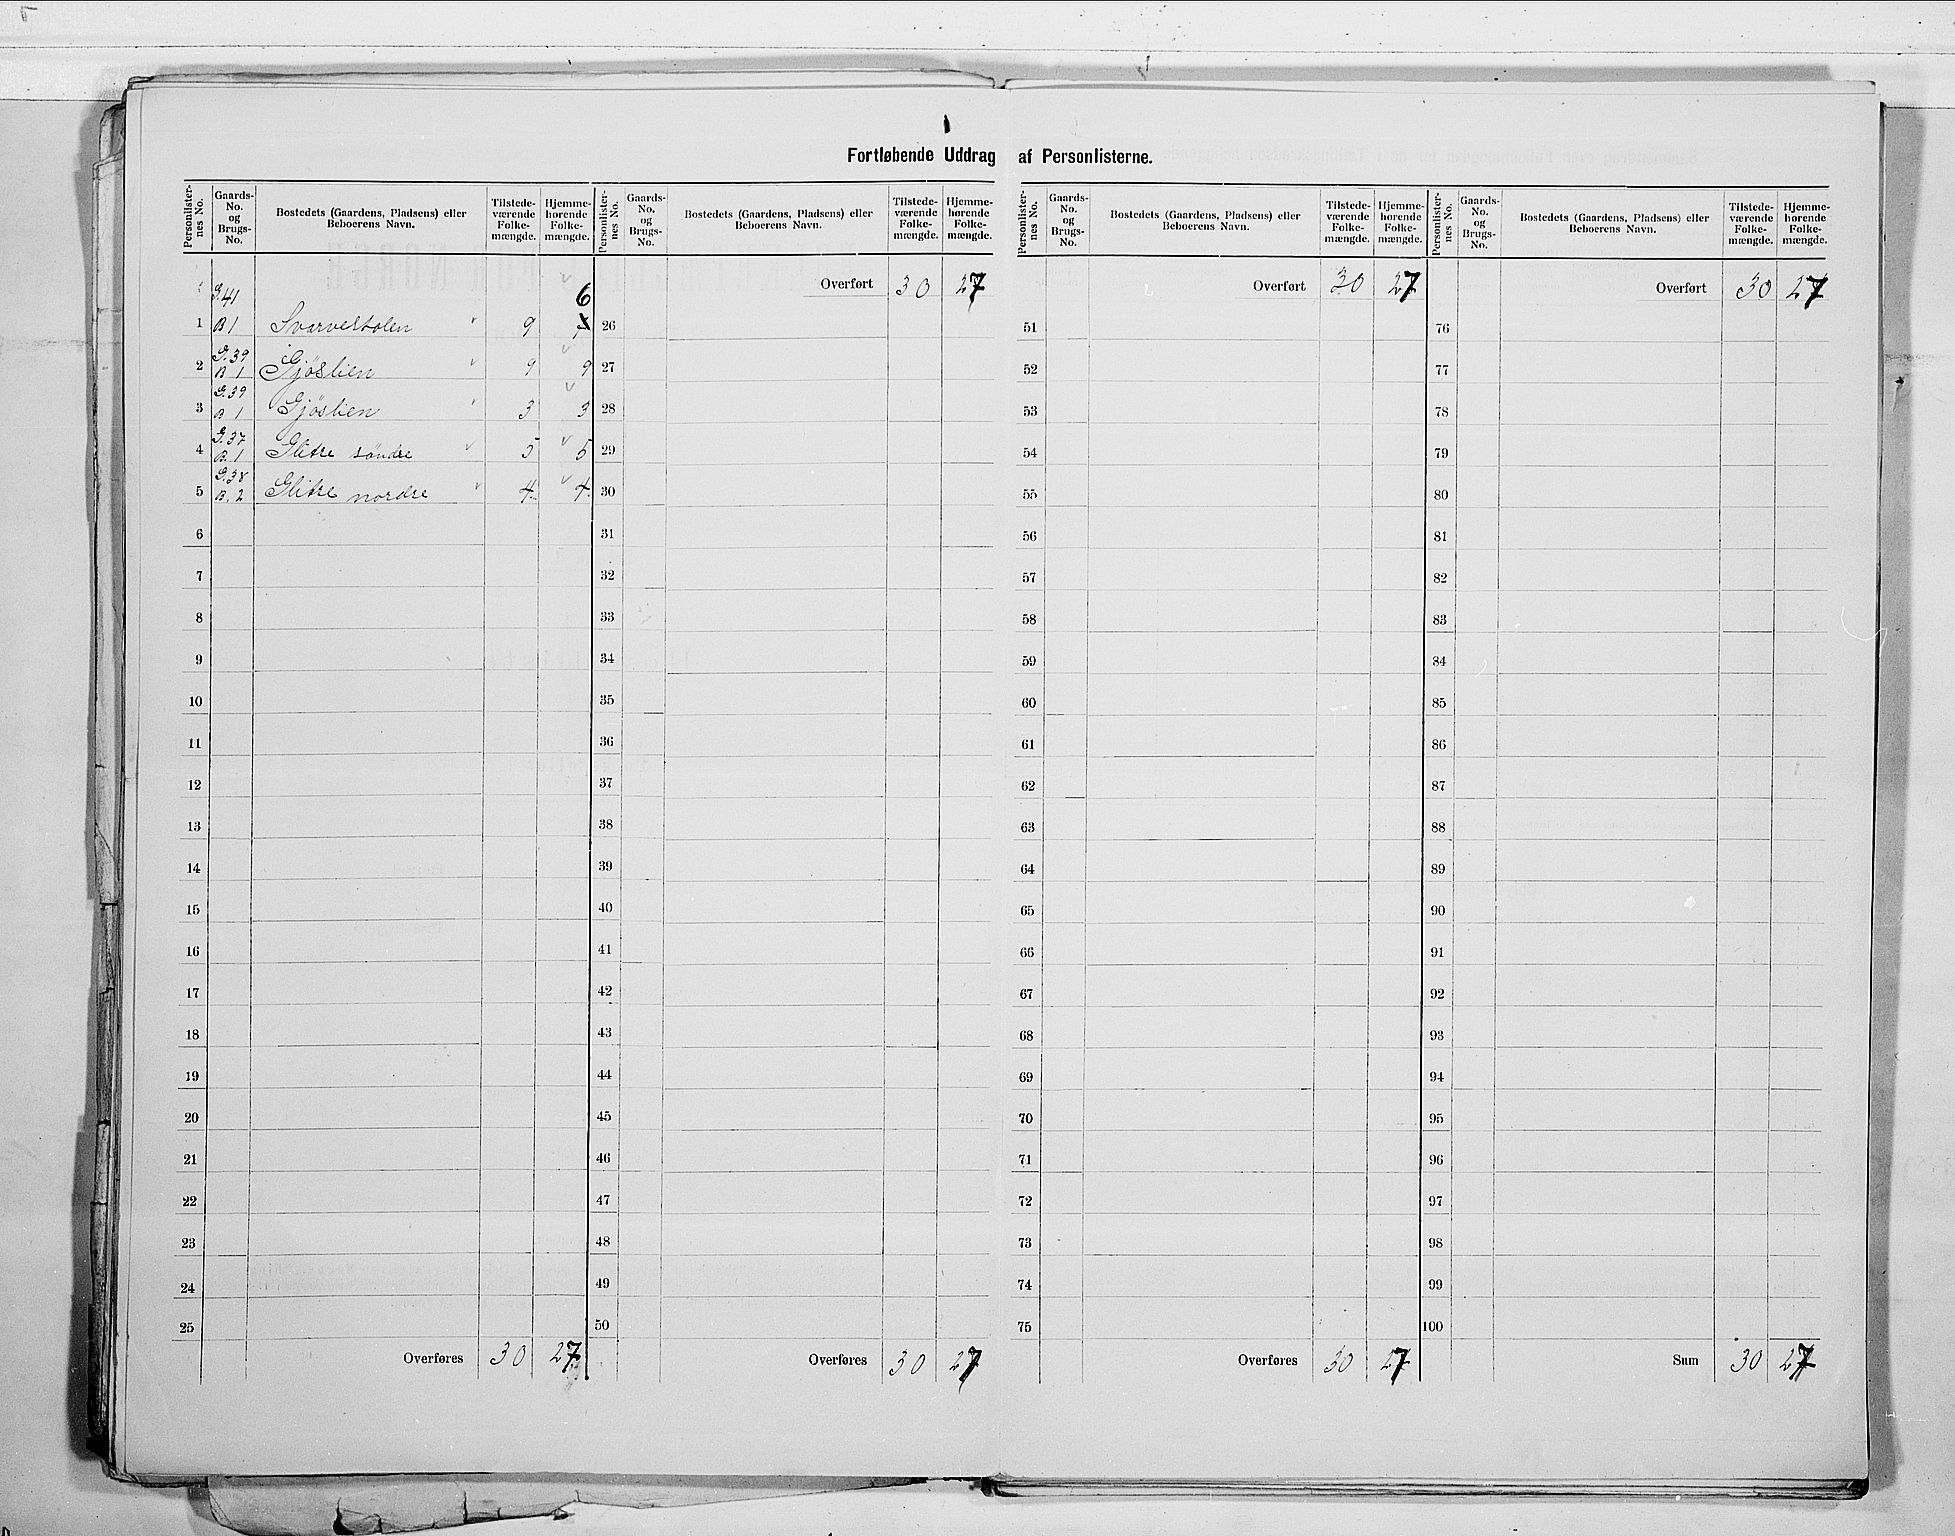 Fortløbende Uddrag af Personlisterne.
Personlister-nes No. | Gaards-No. og Brugs-No. | Bostedets (Gaardens, Pladsens) eller Beboerens Navn. | Tilstede-værende Folke-mængde. | Hjemme-hørende Folke-mængde.
G.41 6
1 B1 Svarvestolen 9
G.39
2 B1 Gjøslien 9 9
G.39
3 B1 Gjøslien 3 3
G.37
4 B.1 Glitre søndre 5 5
G.38
5 B.2 Glitre nordre 4 4
6
7
8
9
10
11
12
13
14
15
16
17
18
19
20
21
22
23
24
25
Overføres 30 27
Personlister-nes No. | Gaards-No. og Brugs-No. | Bostedets (Gaardens, Pladsens) eller Beboerens Navn. | Tilstede-værende Folke-mængde. | Hjemme-hørende Folke-mængde.
Overført 30 27
26
27
28
29
30
31
32
33
34
35
36
37
38
39
40
41
42
43
44
45
46
47
48
49
50
Overføres 30 27
Personlister-nes No. | Gaards-No. og Brugs-No. | Bostedets (Gaardens, Pladsens) eller Beboerens Navn. | Tilstede-værende Folke-mængde. | Hjemme-hørende Folke-mængde.
Overført 30 27
51
52
53
54
55
56
57
58
59
60
61
62
63
64
65
66
67
68
69
70
71
72
73
74
75
Overføres 30 27
Personlister-nes No. | Gaards-No. og Brugs-No. | Bostedets (Gaardens, Pladsens) eller Beboerens Navn. | Tilstede-værende Folke-mængde. | Hjemme-hørende Folke-mængde.
Overført 30 27
76
77
78
79
80
81
82
83
84
85
86
87
88
89
90
91
92
93
94
95
96
97
98
99
100
Sum 30 27